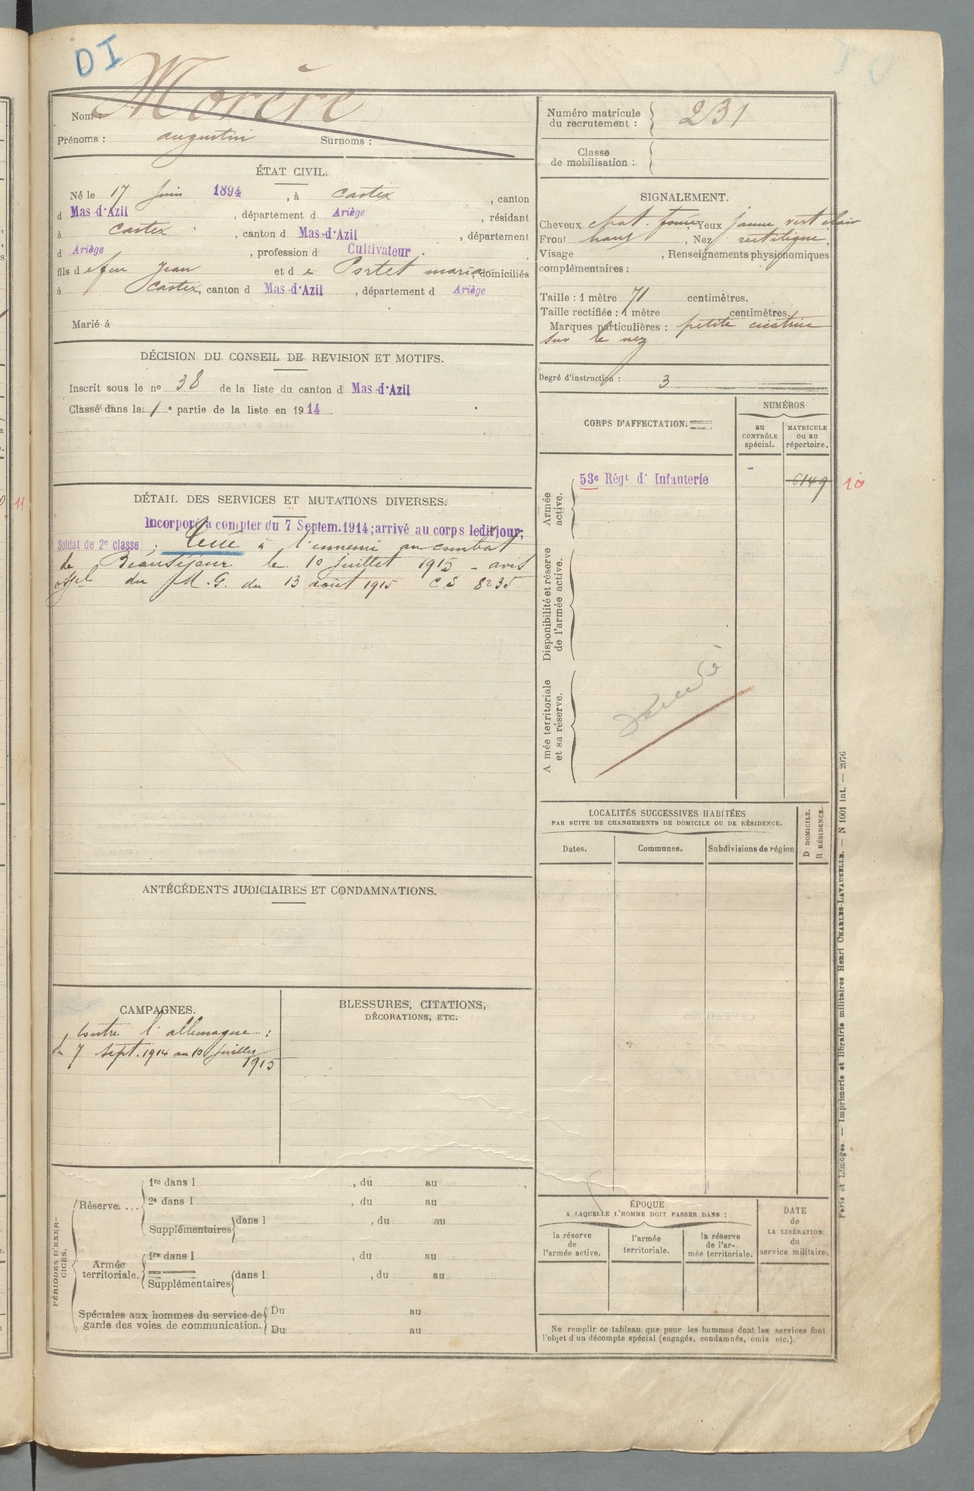 DI
Nom : Morère
Prénoms : augustin Surnoms :
ÉTAT CIVIL.
Né le 17 juin 1894, à Castex, canton
d Mas-d'Azil, département d Ariège, résidant
à Castex, canton d Mas-d'Azil, département
d Ariège, profession d Cultivateur.
fils de feu Jean et de Portet maria, domiciliés
à Castex, canton d Mas-d'Azil, département d Ariège
Marié à
DÉCISION DU CONSEIL DE REVISION ET MOTIFS.
Inscrit sous le no 38 de la liste du canton d Mas-d'Azil
Classé dans la 1e partie de la liste en 1914.
DÉTAIL DES SERVICES ET MUTATIONS DIVERSES.
Incorporé à compter du 7 Septem. 1914; arrivé au corps ledit jour;
Soldat de 2e classe; Tué à l'ennemi au combat
de Beauséjour le 10 juillet 1915 - avis
offel du M. G. du 13 août 1915 CS 8235
ANTÉCÉDENTS JUDICIAIRES ET CONDAMNATIONS.
CAMPAGNES.
Contre l'allemagne :
du 7 sept. 1914 au 10 juillet
1915
BLESSURES, CITATIONS,
DÉCORATIONS, ETC.
PÉRIODES D'EXERCICES.
Réserve ...
1re dans l , du au
2e dans l , du au
Supplémentaires dans l , du au
Armée territoriale.
1re dans l , du au
Supplémentaires dans l , du au
Spéciales aux hommes du service de garde des voies de communication.
Du au
Du au
Numéro matricule du recrutement : 231
Classe de mobilisation :
SIGNALEMENT.
Cheveux chat. foncé, Yeux jaune vert clair
Front haut, Nez rectiligne,
Visage , Renseignements physionomiques
complémentaires :
Taille : 1 mètre 71 centimètres.
Taille rectifiée : 1 mètre centimètres.
Marques particulières : petite cicatrice
sur le nez
Degré d'instruction : 3
CORPS D'AFFECTATION.
NUMÉROS
AU CONTRÔLE spécial.
MATRICULE OU AU répertoire.
Armée active.
53e Régt d' Infanterie
6149
10
Disponibilité et réserve de l'armée active.
A mée territoriale et sa réserve.
LOCALITÉS SUCCESSIVES HABITÉES
PAR SUITE DE CHANGEMENTS DE DOMICILE OU DE RÉSIDENCE.
Dates.
Communes.
Subdivisions de région
D DOMICILE.
R RÉSIDENCE.
ÉPOQUE
A LAQUELLE L'HOMME DOIT PASSER DANS :
la réserve de l'armée active.
l'armée territoriale.
la réserve de l'armée territoriale.
DATE de LA LIBÉRATION du service militaire.
Ne remplir ce tableau que pour les hommes dont les services font
l'objet d'un décompte spécial (engagés, condamnés, omis etc.).
Paris et Limoges. — Imprimerie et librairie militaires Henri CHARLES-LAVAUZELLE. — N 1001 int. — 2976